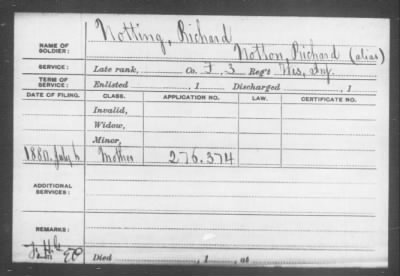 NAME OF SOLDIER: Notting, Richard
Notton, Richard (alias)
SERVICE: Late rank, Co. F. 3 Reg't Wis, Inf.
TERM OF SERVICE: Enlisted , 1 Discharged , 1
DATE OF FILING. CLASS. APPLICATION NO. LAW. CERTIFICATE NO.
Invalid,
Widow,
Minor,
1880. July 6 Mother 276.374
ADDITIONAL SERVICES:
REMARKS:
Died , 1 , at